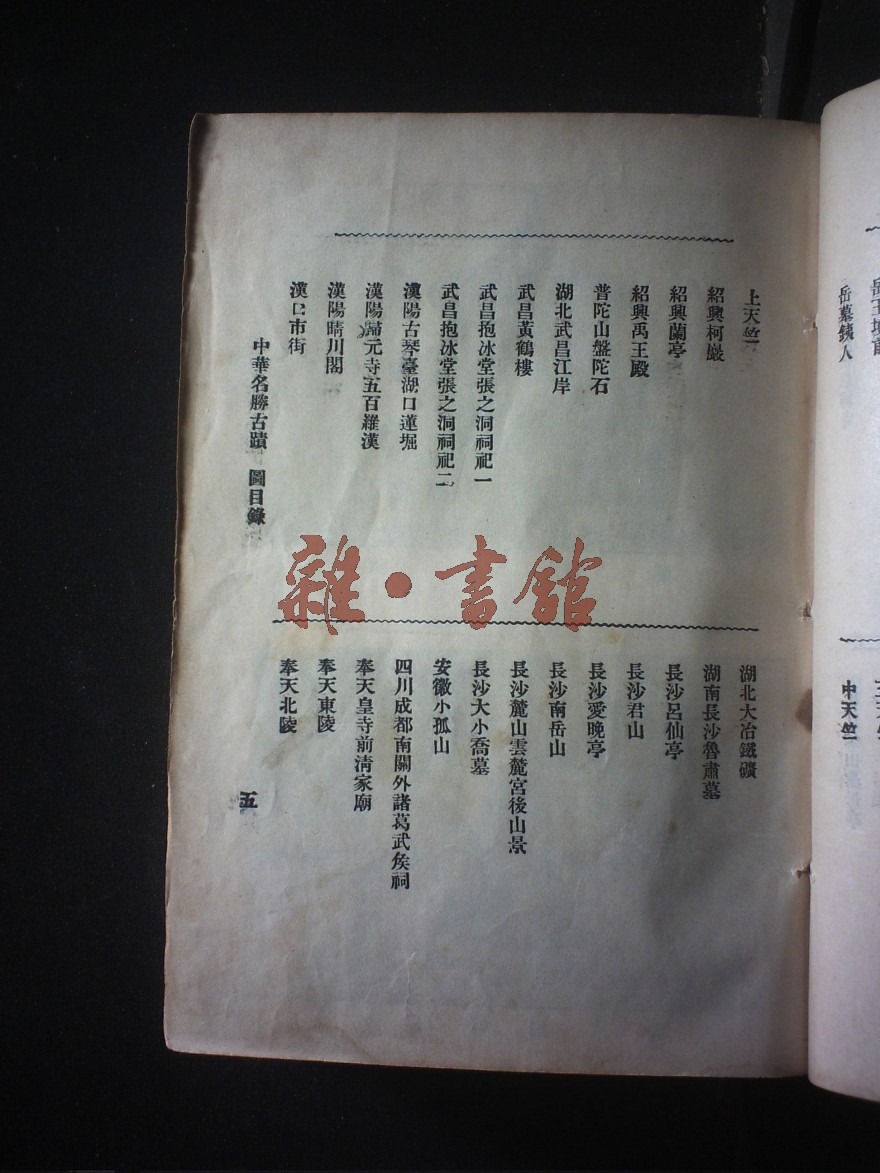 上天竺
紹興柯巖
紹興蘭亭
紹興禹王殿
普陀山盤陀石
湖北武昌江岸
武昌黃鶴樓
武昌抱冰堂張之洞祠祀一
武昌抱冰堂張之洞祠祀二
漢陽古琴臺湖口蓮堀
漢陽歸元寺五百羅漢
漢陽晴川閣
漢口市街
湖北大冶鐵礦
湖南長沙魯肅墓
長沙呂仙亭
長沙君山
長沙愛晚亭
長沙南岳山
長沙麓山雲麓宮後山景
長沙大小喬墓
安徽小孤山
四川成都南關外諸葛武矦祠
奉天皇寺前淸家廟
奉天東陵
奉天北陵
中華名勝古蹟 圖目錄
五
雜·書館
岳墓鐵人
中天竺